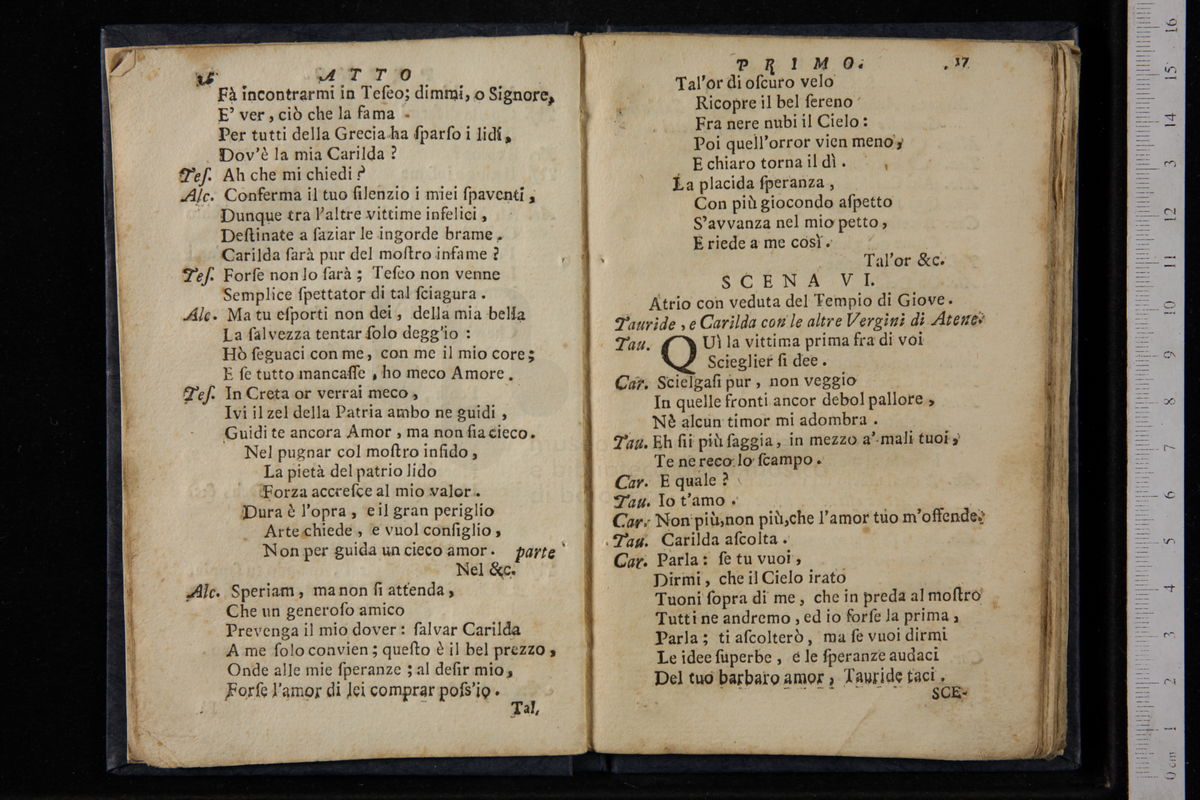 ATTO
Fà incontrarmi in Teſeo; dimmi, o Signore,
E' ver, ciò che la fama
Per tutti della Grecia ha ſparſo i lidi,
Dov'è la mia Carilda?
Teſ. Ah che mi chiedi?
Alc. Conferma il tuo ſilenzio i miei ſpaventi,
Dunque tra l'altre vittime infelici,
Deſtinate a ſaziar le ingorde brame.
Carilda ſarà pur del moſtro infame?
Teſ. Forſe non lo ſarà; Teſeo non venne
Semplice ſpettator di tal ſciagura.
Alc. Ma tu eſporti non dei, della mia bella
La ſalvezza tentar ſolo degg'io:
Hò ſeguaci con me, con me il mio core;
E ſe tutto mancaſſe, ho meco Amore.
Teſ. In Creta or verrai meco,
Ivi il zel della Patria ambo ne guidi,
Guidi te ancora Amor, ma non ſia cieco.
Nel pugnar col moſtro infido,
La pietà del patrio lido
Forza accreſce al mio valor.
Dura è l'opra, e il gran periglio
Arte chiede, e vuol conſiglio,
Non per guida un cieco amor. parte
Nel &c.
Alc. Speriam, ma non ſi attenda,
Che un generoſo amico
Prevenga il mio dover: ſalvar Carilda
A me ſolo convien; queſto è il bel prezzo,
Onde alle mie ſperanze; al deſir mio,
Forſe l'amor di lei comprar poſs'io.
Tal,
PRIMO. 17
Tal'or di oſcuro velo
Ricopre il bel ſereno
Fra nere nubi il Cielo:
Poi quell'orror vien meno,
E chiaro torna il dì.
La placida ſperanza,
Con più giocondo aſpetto
S'avvanza nel mio petto,
E riede a me così.
Tal'or &c.
SCENA VI.
Atrio con veduta del Tempio di Giove.
Tauride, e Carilda con le altre Vergini di Atene.
Tau. QUì la vittima prima fra di voi
Scieglier ſi dee.
Car. Scielgaſi pur, non veggio
In quelle fronti ancor debol pallore,
Nè alcun timor mi adombra.
Tau. Eh ſii più ſaggia, in mezzo a' mali tuoi,
Te ne reco lo ſcampo.
Car. E quale?
Tau. Io t'amo.
Car. Non più, non più, che l'amor tuo m'offende.
Tau. Carilda aſcolta.
Car. Parla: ſe tu vuoi,
Dirmi, che il Cielo irato
Tuoni ſopra di me, che in preda al moſtro
Tutti ne andremo, ed io forſe la prima,
Parla; ti aſcolterò, ma ſe vuoi dirmi
Le idee ſuperbe, e le ſperanze audaci
Del tuo barbaro amor, Tauride taci.
SCE-
0 cm 1 2 3 4 5 6 7 8 9 10 11 12 13 14 15 16